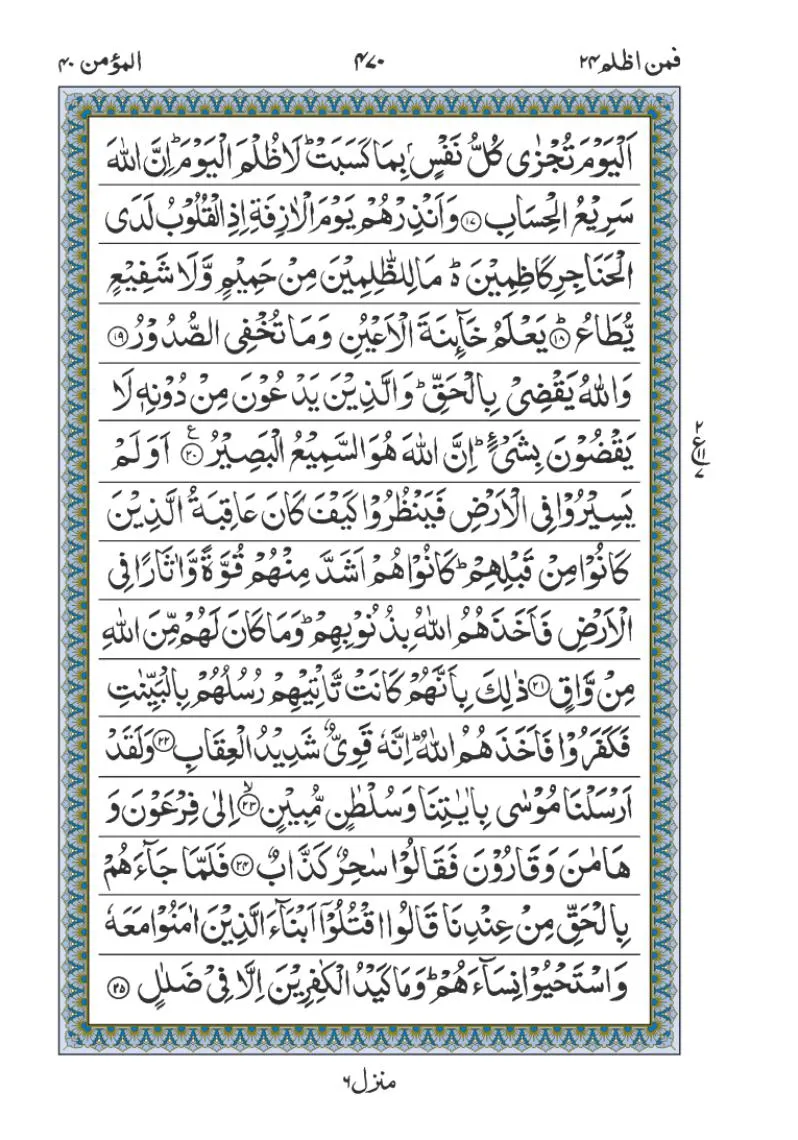 فمن اظلم ۲۴
۴۷۰
المؤمن ۴۰
اَلْیَوْمَ تُجْزٰی كُلُّ نَفْسٍۭ بِمَا كَسَبَتْ ؕ لَا ظُلْمَ الْیَوْمَ ؕ اِنَّ اللّٰهَ
سَرِیْعُ الْحِسَابِ ﴿۱۷﴾ وَاَنْذِرْهُمْ یَوْمَ الْاٰزِفَةِ اِذِ الْقُلُوْبُ لَدَی
الْحَنَاجِرِ كَاظِمِیْنَ ؕ۬ مَا لِلظّٰلِمِیْنَ مِنْ حَمِیْمٍ وَّلَا شَفِیْعٍ
یُّطَاعُ ؕ﴿۱۸﴾ یَعْلَمُ خَآىِٕنَةَ الْاَعْیُنِ وَمَا تُخْفِی الصُّدُوْرُ ﴿۱۹﴾
وَاللّٰهُ یَقْضِیْ بِالْحَقِّ ؕ وَالَّذِیْنَ یَدْعُوْنَ مِنْ دُوْنِهٖ لَا
یَقْضُوْنَ بِشَیْءٍ ؕ اِنَّ اللّٰهَ هُوَ السَّمِیْعُ الْبَصِیْرُ ﴿۲۰﴾ع اَوَ لَمْ
۲
ع ۱۱
۷
یَسِیْرُوْا فِی الْاَرْضِ فَیَنْظُرُوْا كَیْفَ كَانَ عَاقِبَةُ الَّذِیْنَ
كَانُوْا مِنْ قَبْلِهِمْ ؕ كَانُوْا هُمْ اَشَدَّ مِنْهُمْ قُوَّةً وَّاٰثَارًا فِی
الْاَرْضِ فَاَخَذَهُمُ اللّٰهُ بِذُنُوْبِهِمْ ؕ وَمَا كَانَ لَهُمْ مِّنَ اللّٰهِ
مِنْ وَّاقٍ ﴿۲۱﴾ ذٰلِكَ بِاَنَّهُمْ كَانَتْ تَّاْتِیْهِمْ رُسُلُهُمْ بِالْبَیِّنٰتِ
فَكَفَرُوْا فَاَخَذَهُمُ اللّٰهُ ؕ اِنَّهٗ قَوِیٌّ شَدِیْدُ الْعِقَابِ ﴿۲۲﴾ وَلَقَدْ
اَرْسَلْنَا مُوْسٰی بِاٰیٰتِنَا وَسُلْطٰنٍ مُّبِیْنٍ ۙ﴿۲۳﴾ اِلٰی فِرْعَوْنَ وَ
هَامٰنَ وَقَارُوْنَ فَقَالُوْا سٰحِرٌ كَذَّابٌ ﴿۲۴﴾ فَلَمَّا جَآءَهُمْ
بِالْحَقِّ مِنْ عِنْدِنَا قَالُوا اقْتُلُوْۤا اَبْنَآءَ الَّذِیْنَ اٰمَنُوْا مَعَهٗ
وَاسْتَحْیُوْا نِسَآءَهُمْ ؕ وَمَا كَیْدُ الْكٰفِرِیْنَ اِلَّا فِیْ ضَلٰلٍ ﴿۲۵﴾
منزل ۶